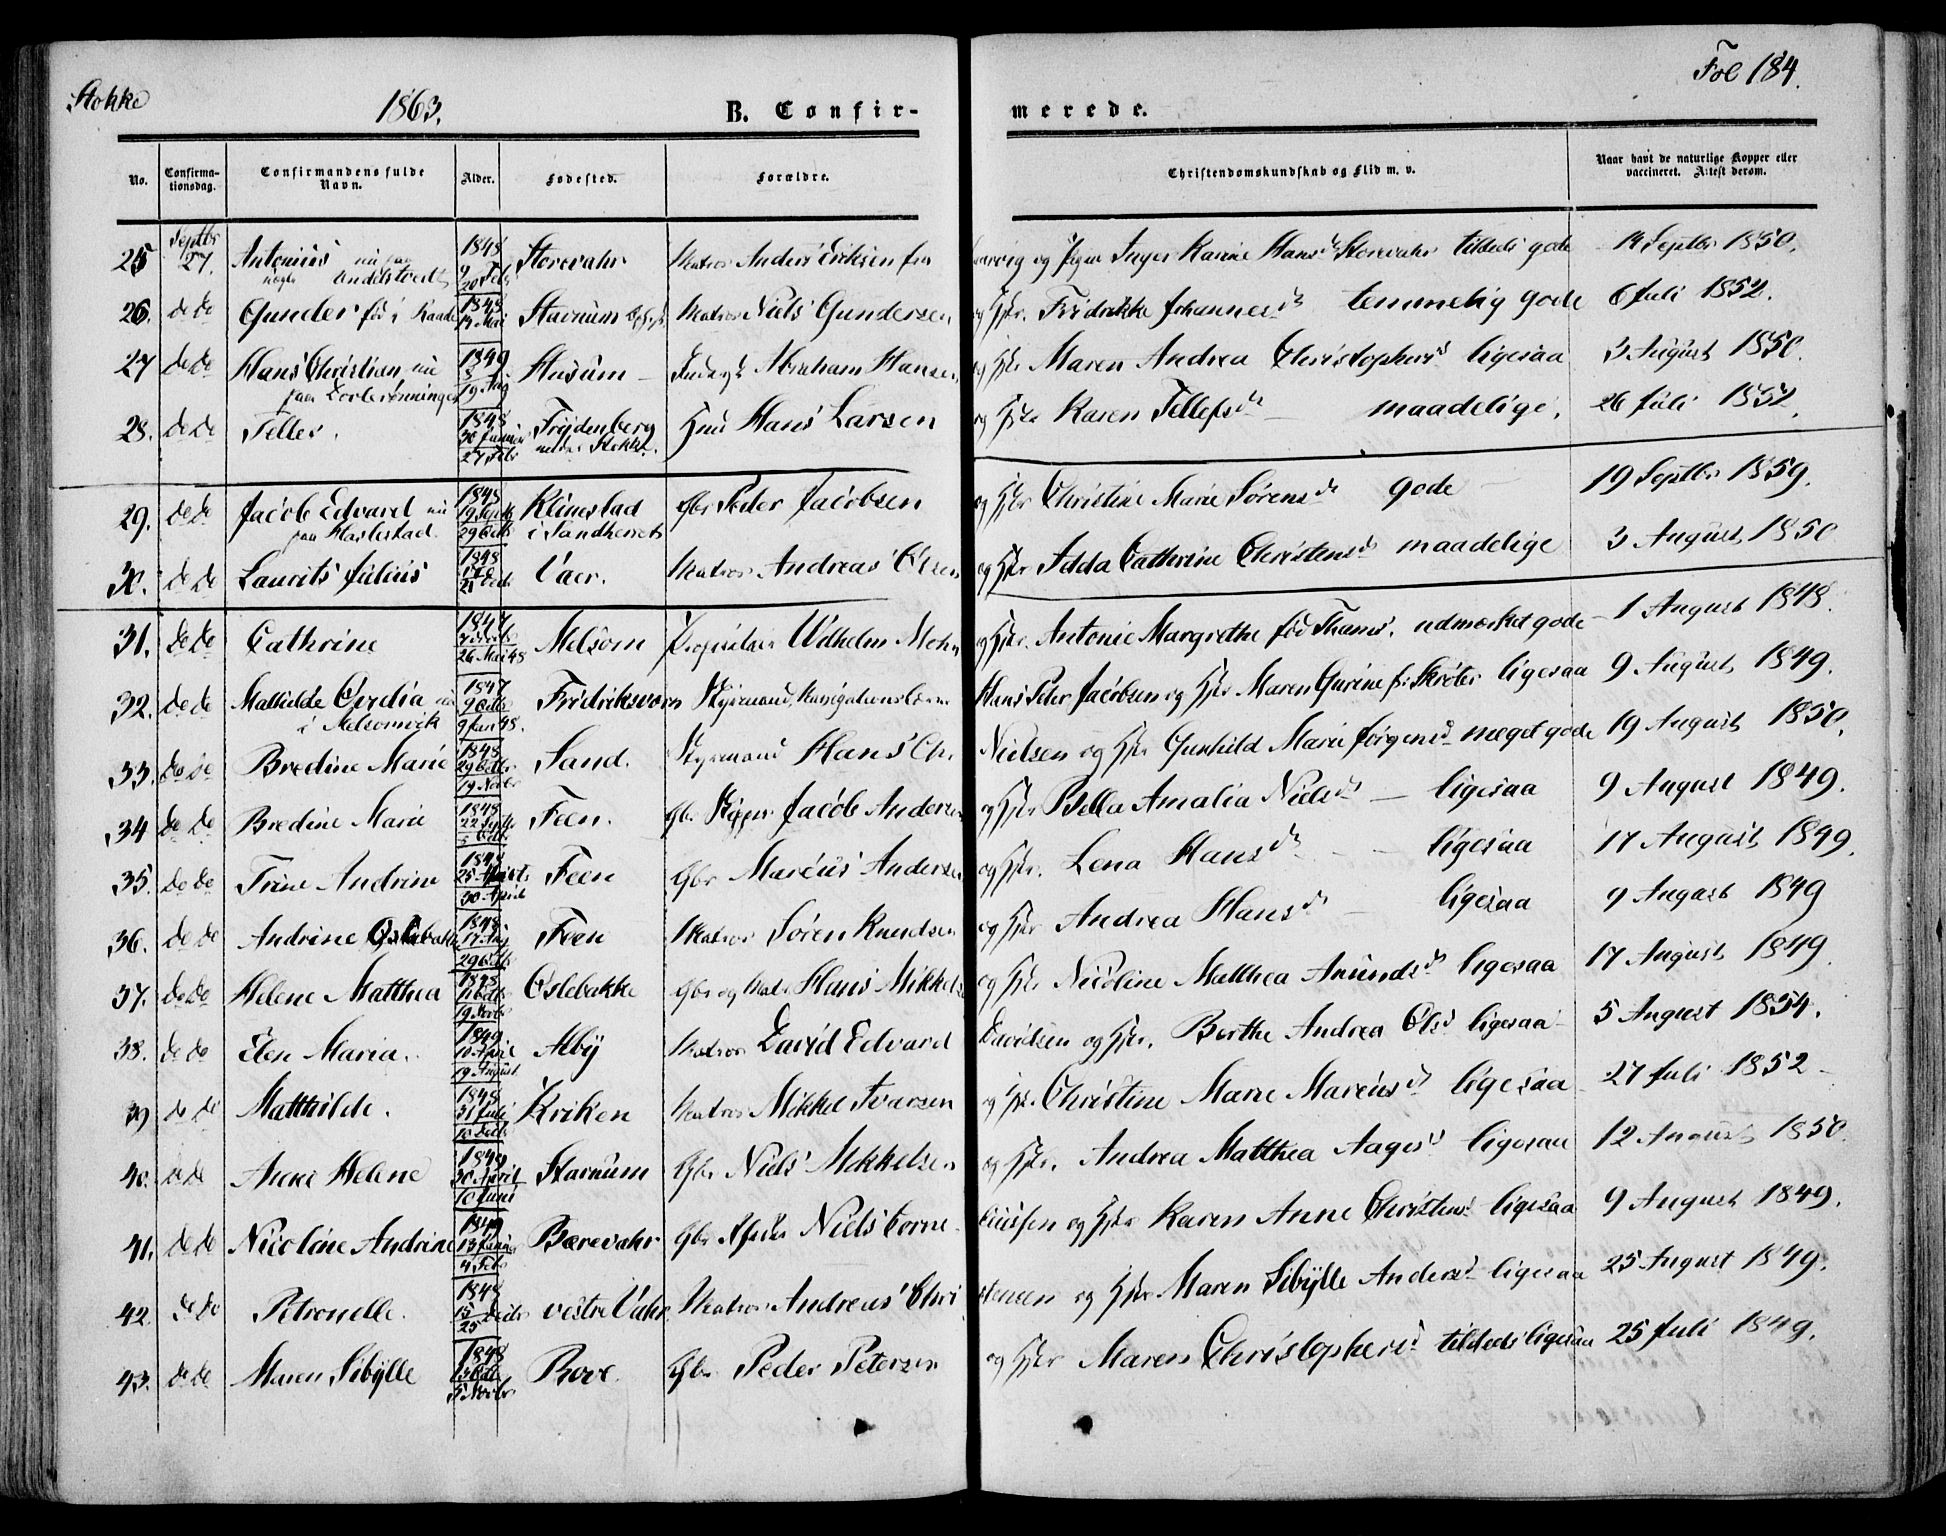 Stokke 1863. B. Confir- merede. Fol 184.
No. Confirma-tionsdag. Confirmandens fulde Navn. Alder. Fødested. Forældre. Christendomskundskab og Flid m. v. Naar havt de naturlige Kopper eller vaccineret. Attest derom.
25 Septbr 27. Antonius nu paa nogle Andelstvedt 1848 9 20 Febr Storevahr Matros Anders Eriksen fra Larvig og Pigen Inger Karine Hansd. Storevahr tildeels gode 14 Septbr 1850.
26. do do Gunder fød i Raade 1848 14 Mai Stavnum Matros Niels Gundersen og Hstr. Fridrikke Johannesd. temmelig gode 6 Juli 1852.
27 do do Hans Christian nu paa Dorterønningen 1849 3 19 Aug Husum Abraham Hansen og Hstr Maren Andrea Christophersd. ligesaa 3 August 1850.
28. do do Tellef. 1848 30 Januar 27 Febr Frydenberg nedre Stokke. Hmd Hans Larsen og Hstr Karen Tellefsd. maadelige. 26 Juli 1852.
29. do do Jacob Edvard nu paa Harlestad. 1848 19 Septb 29 Octb Klinestad i Sandherred Gbr Peder Jacobsen og Hstr Christine Marie Sørensd. gode 19 Septbr 1859.
30. do do Laurits Julius 1848 21 Decb Vaer. Matros Andreas Olsen og Hstr Adda Cathrine Christensd. maadelige 3 August 1850
31. do do Cathrine 1847 26 Mai 48 Melsom Proprietair Wilhelm Mohn og Hstr. Antonie Margrethe fød Thams. udmærket gode 1 August 1848.
32. do do Mathilde Ovidia nu i Melsomvik 1847 9 Octb 9 Jan 48. Fridriksværn Styrmand, Navigationslærer Hans Peter Jacobsen og Hstr Maren Gurine f: Skrøter ligesaa 9 August 1849.
33. do do Bredine Marie 1848 29 Octbr 19 Novbr Sand. Styrmand Hans Chr. Nielsen og Hstr Gunhild Marie Jørgensd. meget gode 19 August 1850.
34 do do Bredine Marie 1848 22 Septb 5 Octb Feen. Gbr. Skipper Jacob Andersen og Hstr Bella Amalia Nielsd. ligesaa 9 August 1849.
35. do do Trine Andrine 1848 25 April 30 April Feen Gbr Marcus Andersen og Hstr. Lena Hansd. ligesaa 17 August 1849.
36. do do Andrine Oslebakke 1848 17 Aug 29 Octb Feen Matros Søren Knudsen og Hstr Andrea Hansd. ligesaa 9 August 1849
37. do do Helene Matthea 1848 11 Octb 19 Novbr Oslebakke Gbr og Matr Hans Mikkelsen og Hstr Nicoline Matthea Amundsd. ligesaa 17 August 1849
38. do do Elen Maria. 1849 10 April 19 August Alby Matros David Edvard Davidsen og Hstr. Berthe Andrea Olsd. ligesaa 5 August 1854.
39 do do Matthilde. 1848 31 Juli 10 Decb Kriken Matros Mikkel Ivarsen og Hstr. Christine Marie Marcusd. ligesaa 27 Juli 1852
40. do do Anne Helene 1849 30 April 10 Juni Stavnum Gbr Niels Mikkelsen og Hstr. Andrea Matthea Aagesd. ligesaa 12 August 1850.
41. do do Nicoline Andrine 1849 13 Januar 4 Febr Bærevahr Gbr Niels Corneliussen og Hstr Karen Anne Christensd. ligesaa 9 August 1849.
42. do do Petronelle. 1848 15 25 Decbr vestre Vahr. Matros Andreas Christensen og Hstr Maren Sibylle Andersd. ligesaa 25 August 1849.
43. do do Maren Sibylle 1848 13 Octb 5 Novbr Rove. Gbr Peder Petersen og Hstr Maren Christophersd. tildeels ligesaa 25 Juli 1849.